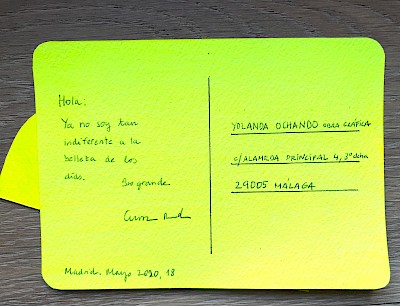 Hola:
Ya no soy tan
indiferente a la
belleza de los
días.
YOLANDA OCHANDO OBRA GRÁFICA
C/ALAMEDA PRINCIPAL 4, 3º dcha
29005 MÁLAGA
Madrid. Mayo 2020, 18